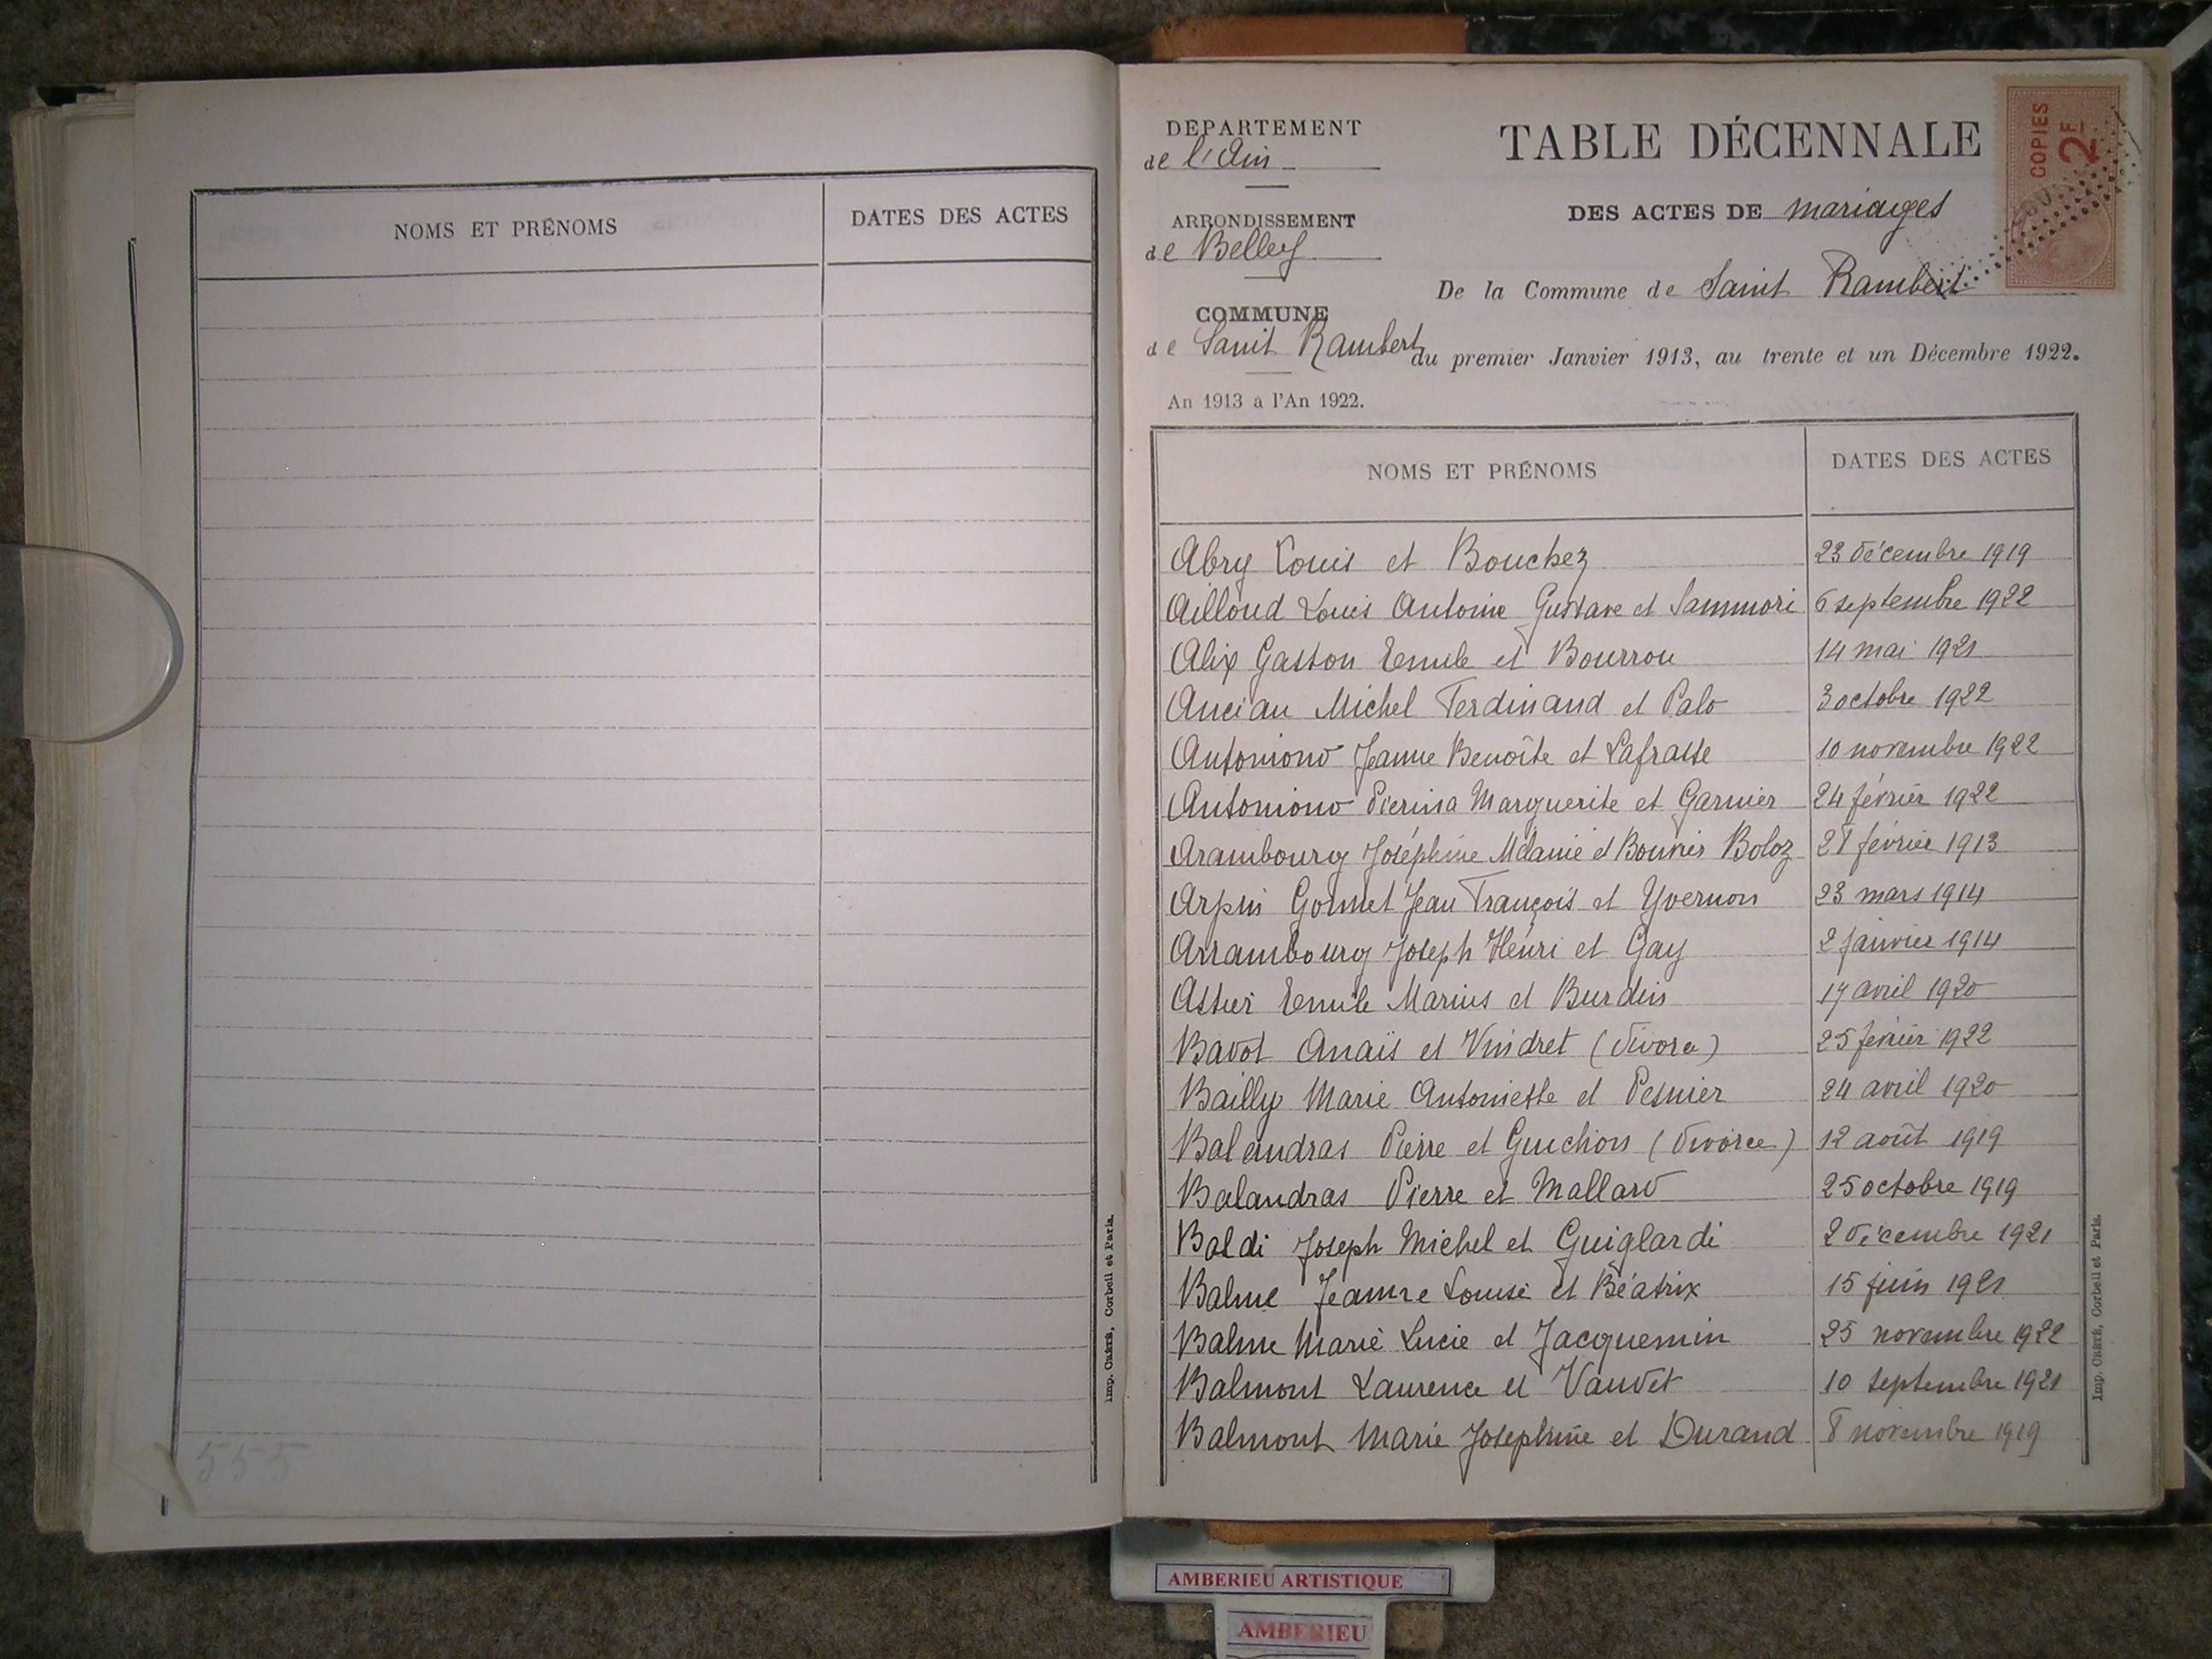 NOMS ET PRÉNOMS
DATES DES ACTES
555
Imp. CRÉTÉ, Corbeil et Paris.
DÉPARTEMENT
de l'Ain
ARRONDISSEMENT
de Belley
COMMUNE
de Saint Rambert
An 1913 à l'An 1922.
TABLE DÉCENNALE
DES ACTES DE mariages
De la Commune de Saint Rambert
du premier Janvier 1913, au trente et un Décembre 1922.
COPIES
2F
NOMS ET PRÉNOMS
DATES DES ACTES
Abry Louis et Bouchez 23 décembre 1919
Ailloud Louis Antoine Gustave et Sammori 6 septembre 1922
Alix Gaston Emile et Bourrou 14 mai 1921
Anciau Michel Ferdinand et Palo 3 octobre 1922
Antoniono Jeanne Benoîte et Lafrasse 10 novembre 1922
Antoniono Pierina Marguerite et Garnier 24 février 1922
Arambourg Joséphine Mélanie et Bouvier Boloz 28 février 1913
Arpin Gonnet Jean François et Yvernon 23 mars 1914
Arrambourg Joseph Henri et Gay 2 janvier 1914
Astier Emile Marius et Burdin 17 avril 1920
Badot Anaïs et Vindret (divorce) 25 février 1922
Bailly Marie Antoinette et Pesnier 24 avril 1920
Balandras Pierre et Guichon (divorce) 12 août 1919
Balandras Pierre et Mallard 25 octobre 1919
Baldi Joseph Michel et Guiglardi 2 décembre 1921
Balme Jeanne Louise et Béatrix 15 juin 1921
Balme Marie Lucie et Jacquemin 25 novembre 1922
Balmont Laurence et Vaudet 10 septembre 1921
Balmont Marie Josephine et Durand 8 novembre 1919
Imp. CRÉTÉ, Corbeil et Paris.
AMBERIEU ARTISTIQUE
AMBERIEU